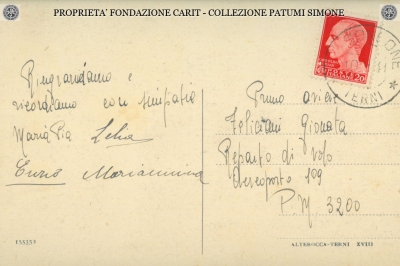 PROPRIETA' FONDAZIONE CARIT - COLLEZIONE PATUMI SIMONE
Ringraziamo e
ricordiamo con simpatia
Maria Pia Lelia
Enzo Mariannina
Primo avier
Feliciani Gionata
Reparto di volo
Aeroporto 109
P.M 3200
20
TERNI
155557
ALTAROCCA-TERNI XVIII